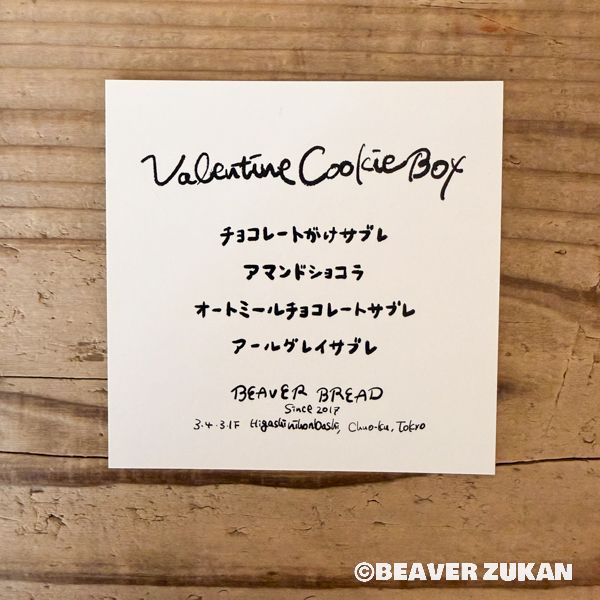 Valentine Cookie Box
チョコレートがけサブレ
アマンドショコラ
オートミールチョコレートサブレ
アールグレイサブレ
BEAVER BREAD
Since 2017
3.4.3.1F Higashinihonbashi, Chuo-ku, Tokyo
©BEAVER ZUKAN